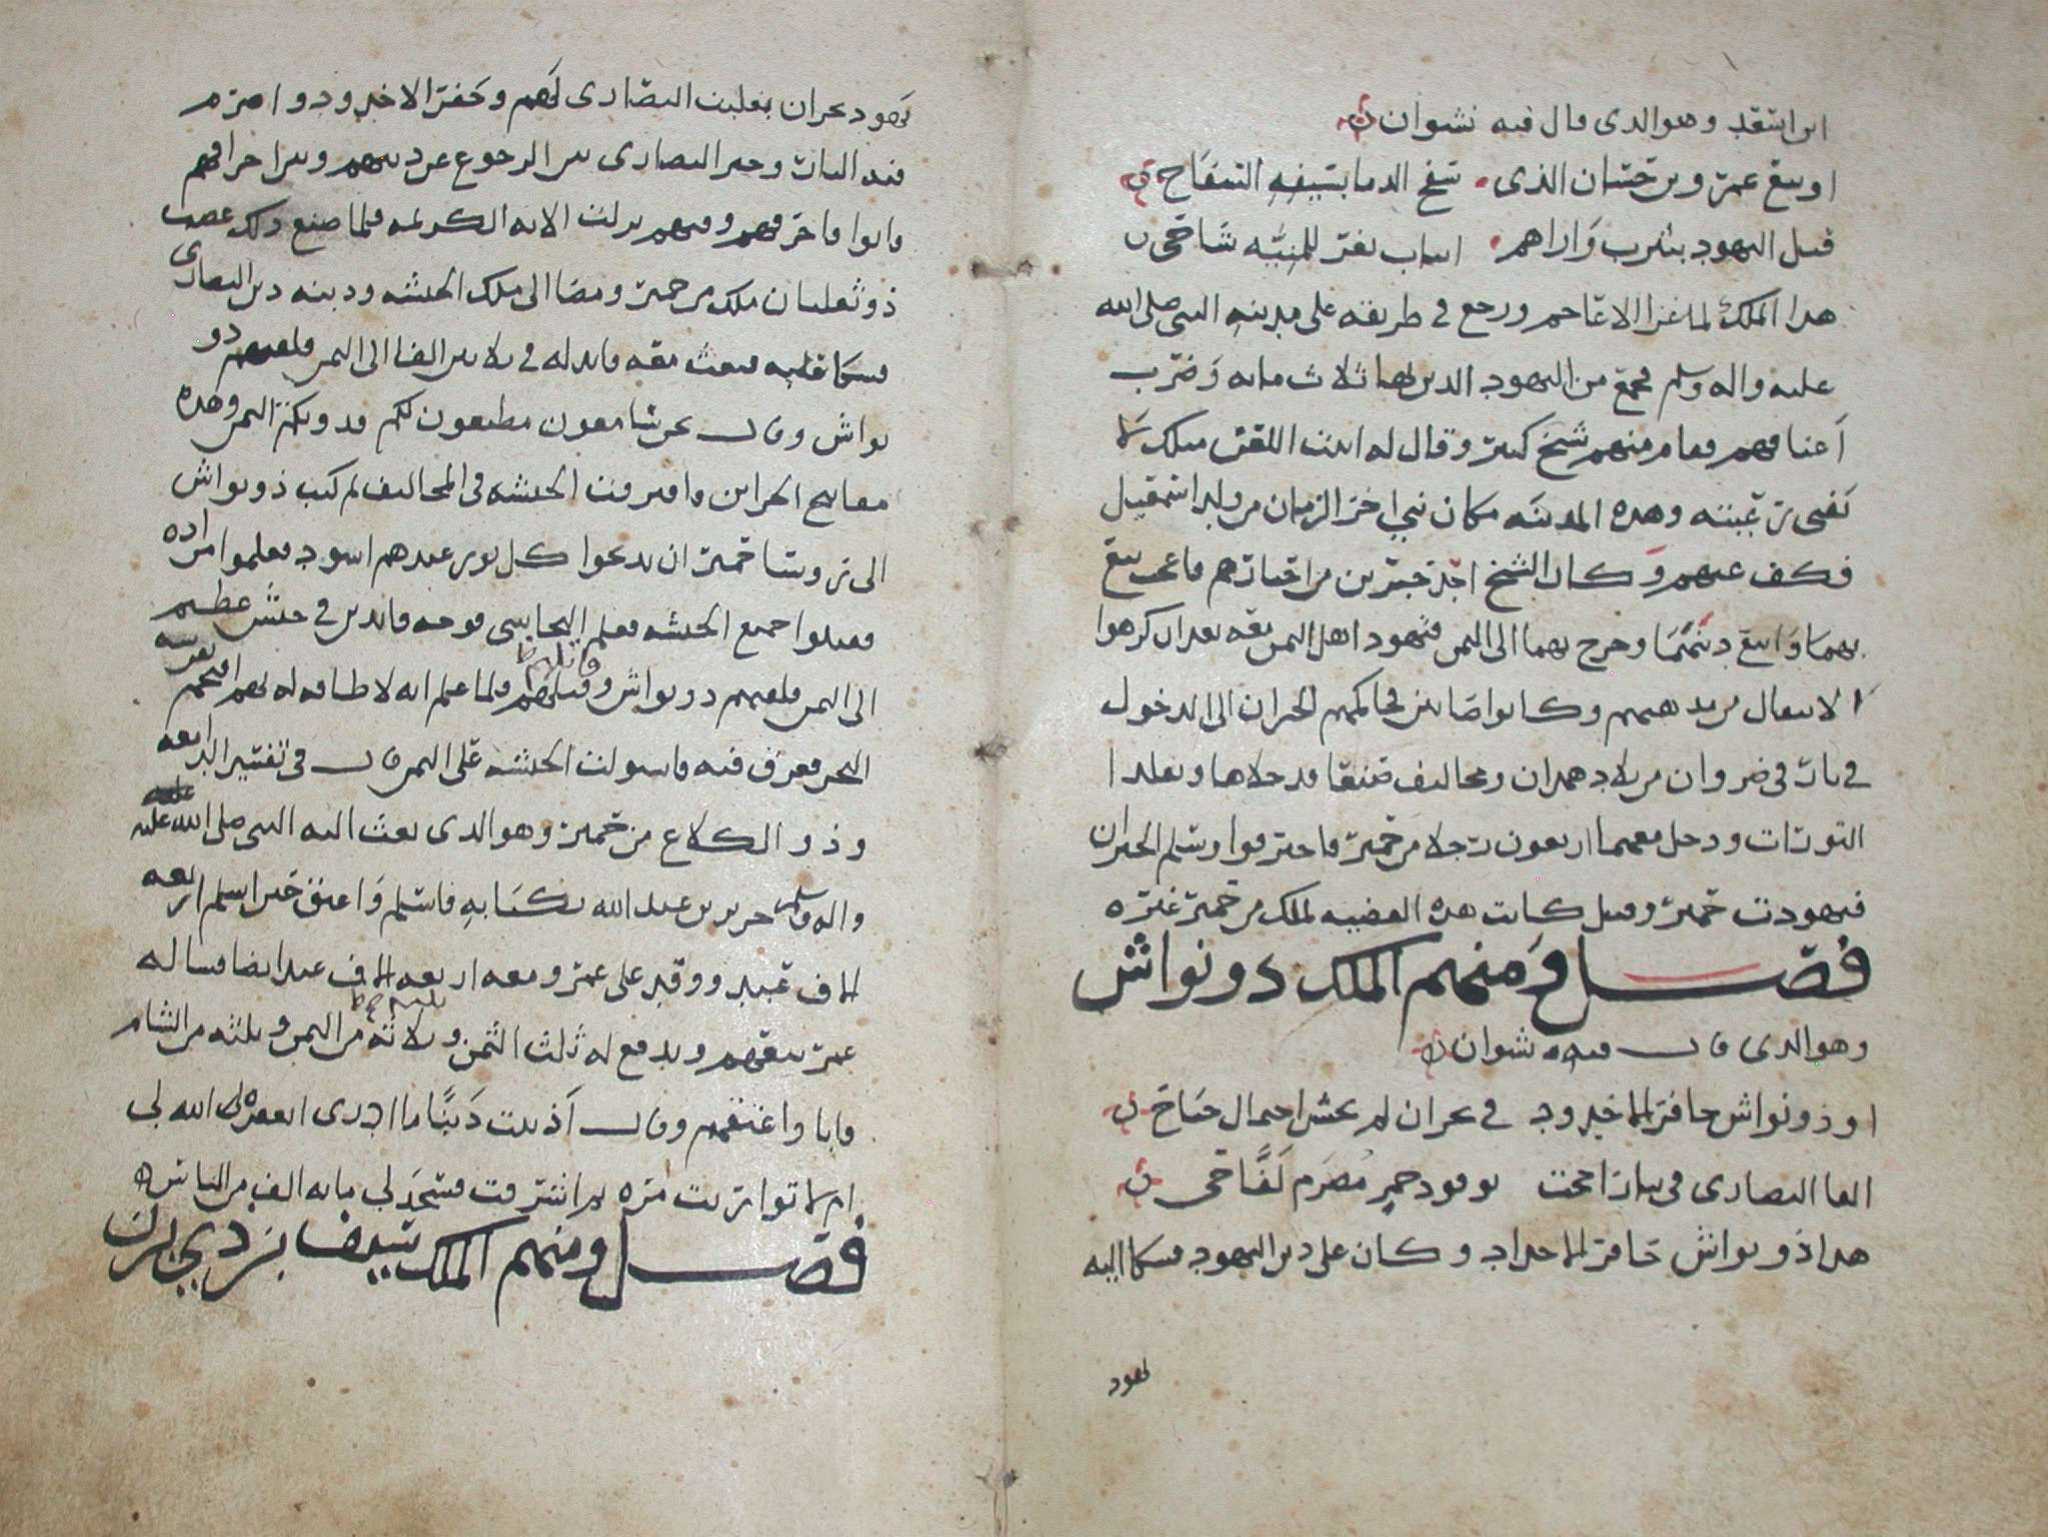 ابن اسعد وهو الذي قال فيه نشوان
او تبع عمرو بن حسان الذي سفح الدما بسيفه السفاح
قتل اليهود بيثرب واراهم انياب ثغر للمنيه شاحي
هذا الملك لما غزا الاعاجم ورجع في طريقه على مدينه النبي صلى الله
عليه واله وسلم فجمع من اليهود الذين بها ثلاث مايه وضرب
اعناقهم فقام منهم شيخ كبير وقال له ابيت اللعن مثلك لا
وهذه المدينه مكان نبي اخر الزمان من ولد اسمعيل
فكف عنهم وكان الشيخ احد حبرين من احبارهم فاعجب تبع
بهما واتبع دينهما وخرج بهما الى اليمن فتهود اهل اليمن معه بعد ان كرهوا
الانتقال من مذهبهم وكانوا صابين فحاكمهم الحبران الى الدخول
في نار في ضروان من بلاد همدان ومخاليف صنعا فدخلاها وتقلدا
التورات ودخل معهما اربعون رجلا من حمير فاحترقوا وسلم الحبران
فتهودت حمير وقيل كانت هذه القضيه لملك من حمير غيره
فصل ومنهم الملك ذو نواش
وهو الذي قال فيه نشوان
او ذو نواش حافر الاخدود في نجران لم يخش احتمال جناح
القا النصارى في نار اججت بوقود جمر مضرم لفاح
هذا ذو نواش حافر الاخداد وكان على دين اليهود فشكا اليه
يهود
يهود نجران بغلبت النصارى لهم وحفر الاخدود واضرم
فيه النار وخير النصارى بين الرجوع عن دينهم وبين احراقهم
فابوا فاحرقهم وفيهم نزلت الايه الكريمه فلما صنع ذلك غضب
ذو ثعلبان ملك من حمير ومضا الى ملك الحبشه ودينه دين النصارى
فشكا عليه فبعث معه قايد له في ثلاثين الفا الى اليمن فلقيهم ذو
نواش وقال نحن سامعون مطيعون لكم فدونكم اليمن وهذه
مفاتيح الخزاين وافترقت الحبشه في المخاليف ثم كتب ذو نواش
الى روسا حمير ان يذبحوا كل ثور عندهم اسود فعلموا مراده
فقتلوا جميع الحبشه فعلم النجاشي فوجه قايدين في جيش عظيم
الى اليمن فلقيهم ذو نواش وقتلهم قاتلهم ظ فلما علم انه لا طاقه له بهم اقتحم بفرسه
البحر فغرق فيه فاستولت الحبشه على اليمن قال في تفسير الدامغه
وذو الكلاع من حمير وهو الذي بعث اليه النبي صلى الله عليه
واله وسلم جرير بن عبد الله بكتابه فاسلم واعتق حين اسلم اربعه
الاف عبيد ووفد على عمر ومعه اربعه الاف عبد ايضا فساله
عمر بيعهم ويدفع له ثلث الثمن وثلاثه من اليمن وثلثه من الشام
فابا واعتقهم وقال اذنبت ذنبا ما ادري ايغفره الله لي
ام لا تواريت مره ثم اشرفت فسجد لي مايه الف من الناس
فصل ومنهم الملك سيف بن ذي يزن